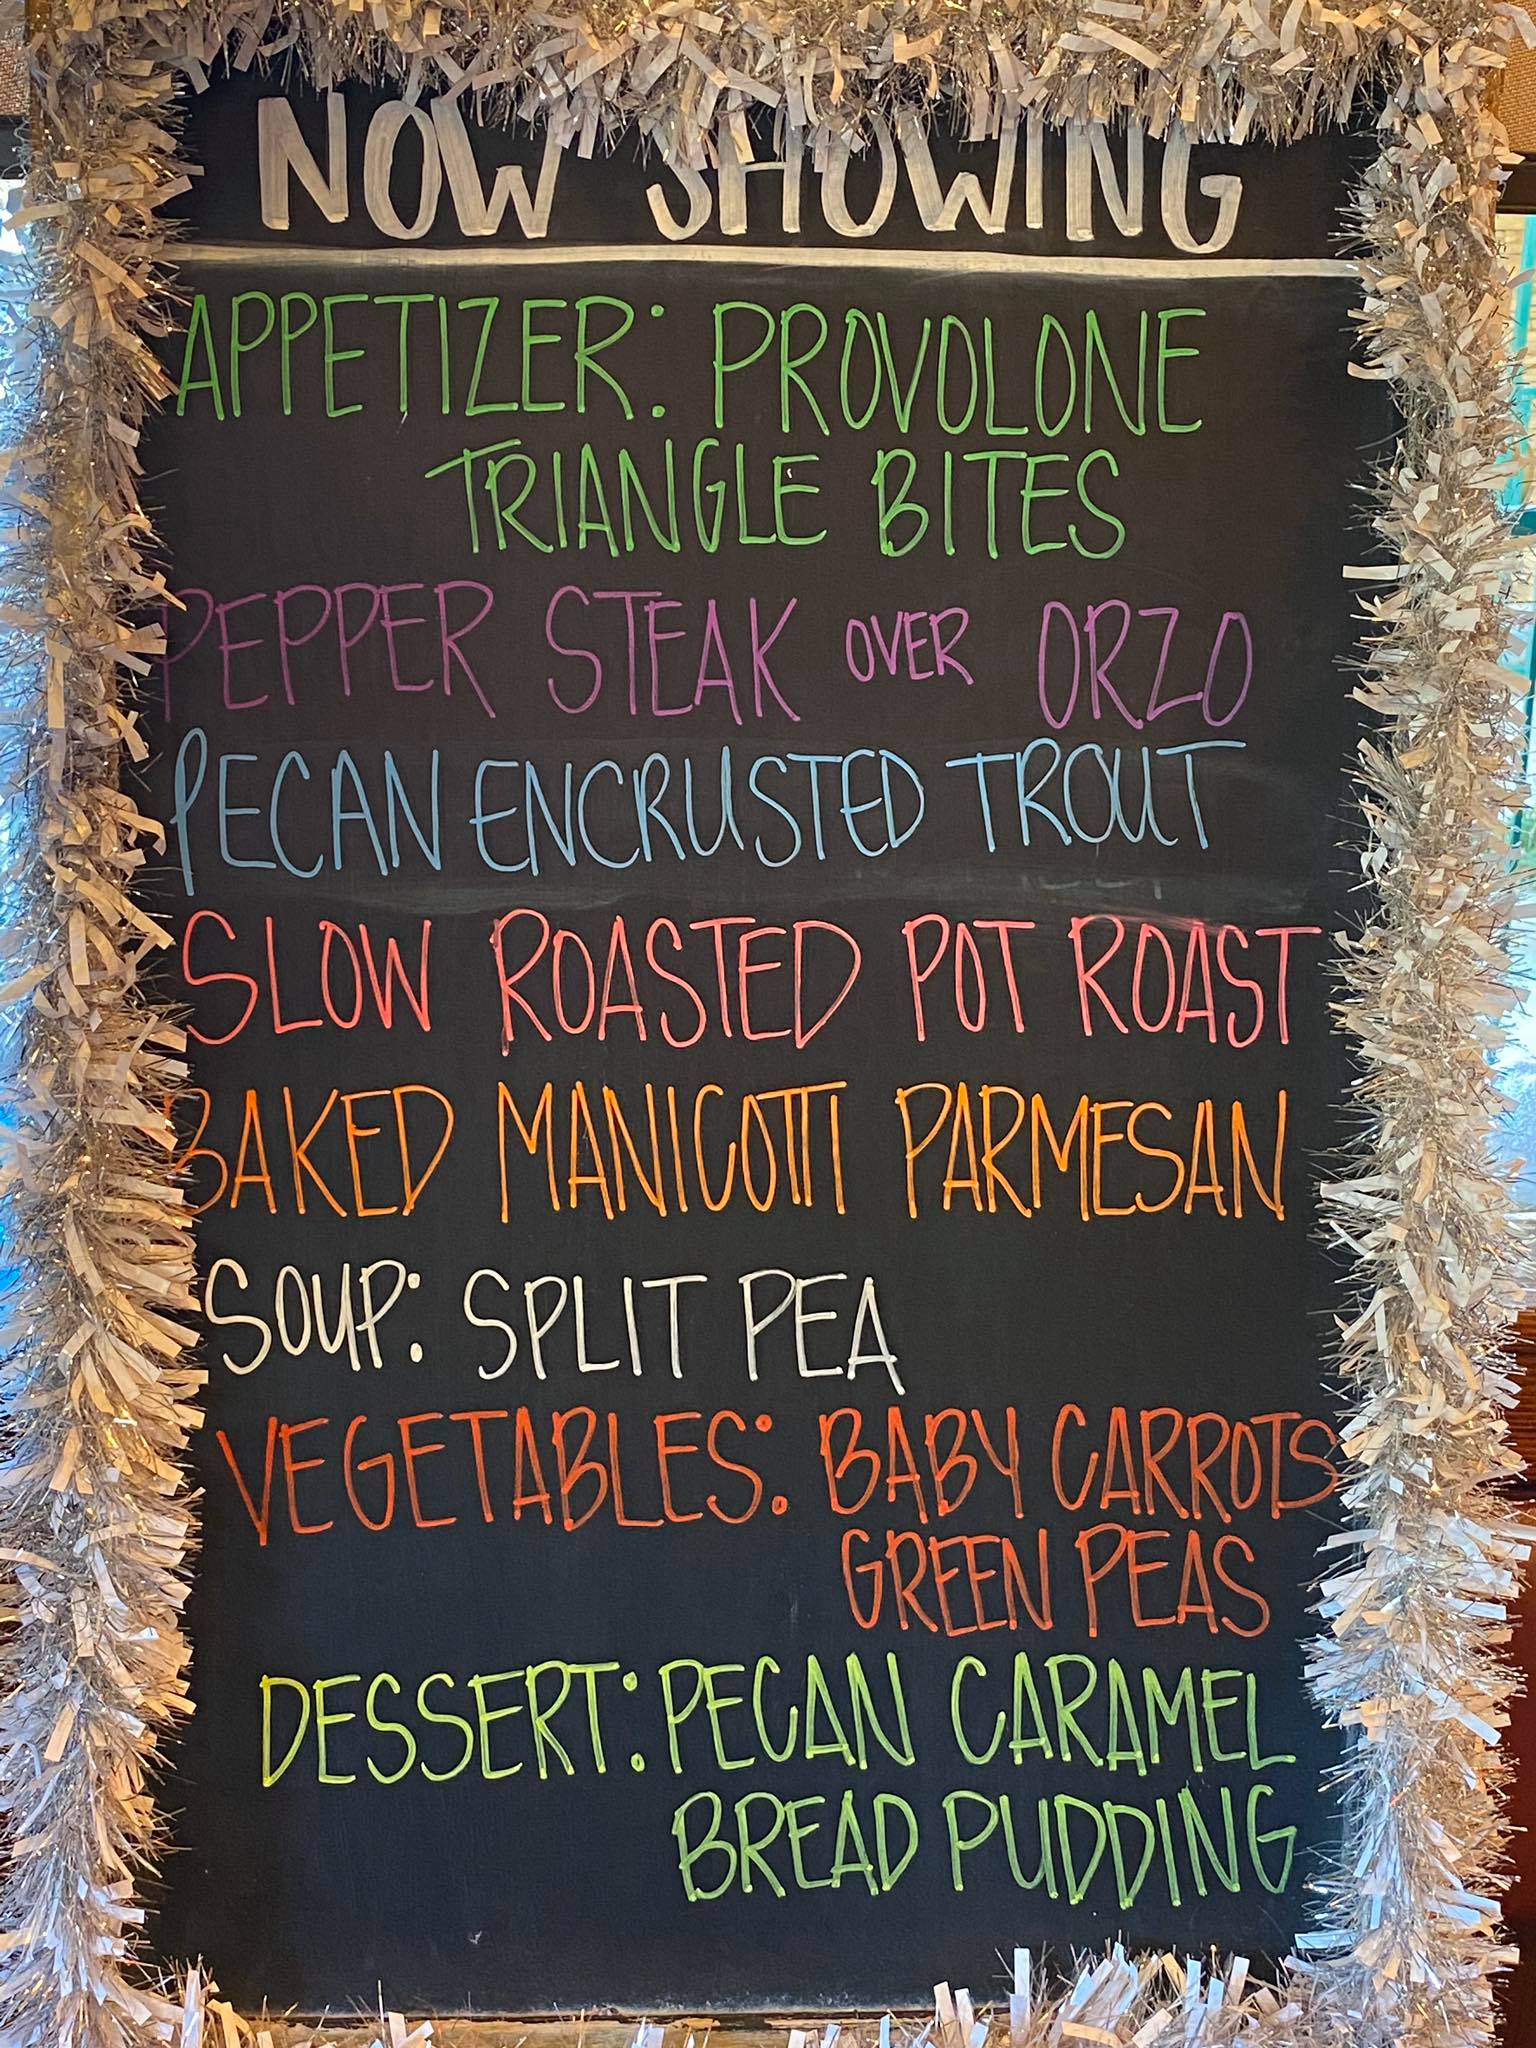 NOW SHOWING
APPETIZER: PROVOLONE
TRIANGLE BITES
PEPPER STEAK OVER ORZO
PECAN ENCRUSTED TROUT
SLOW ROASTED POT ROAST
BAKED MANICOTTI PARMESAN
SOUP: SPLIT PEA
VEGETABLES: BABY CARROTS
GREEN PEAS
DESSERT: PECAN CARAMEL
BREAD PUDDING